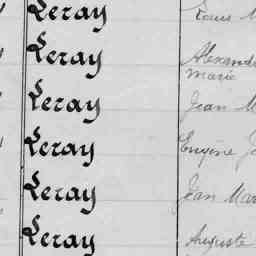 Leray Louis
Leray Alexand
Marie
Leray Jean M
Leray Eugène J
Leray Jean Mar
Leray Auguste